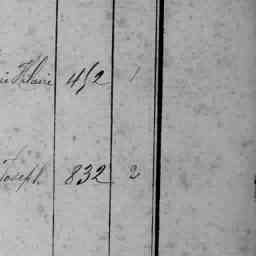 Hilaire 452 1
Joseph 832 2